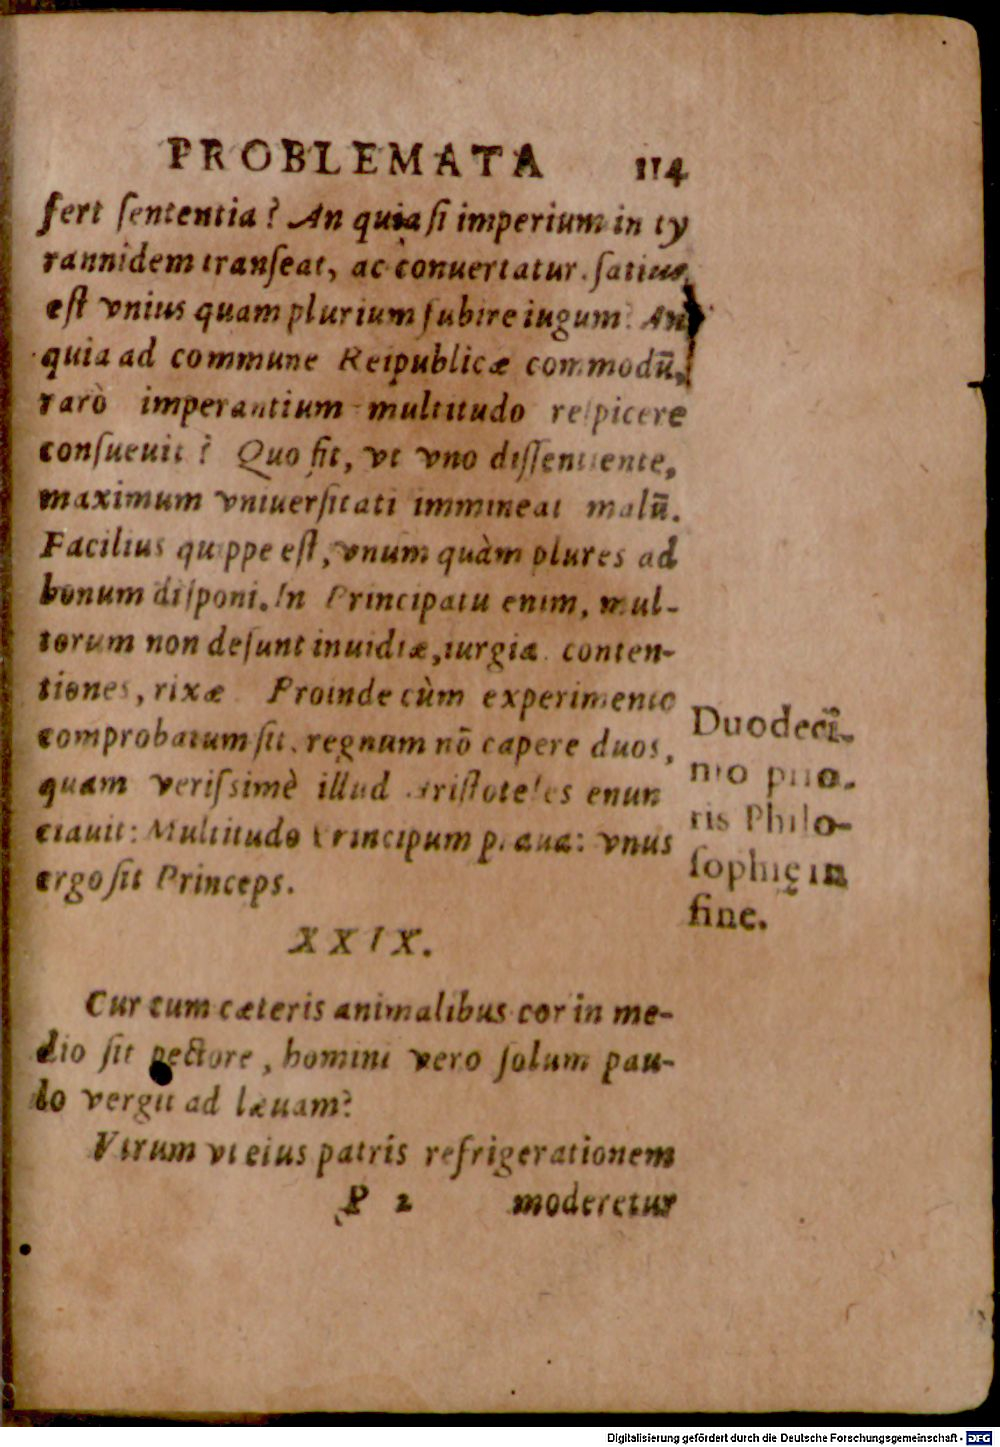 PROBLEMATA 114
fert ſententia? An quia ſi imperium in ty
rannidem tranſeat, ac conuertatur. ſatius
eſt vnius quam plurium ſubire iugum? An
quia ad commune Reipublicæ commodũ,
rarò imperantium multitudo reſpicere
conſueuit? Quo fit, vt vno diſſentiente,
maximum vniuerſitati immineat malũ.
Facilius quippe eſt, vnum quàm plures ad
bonum diſponi. In Principatu enim, mul-
torum non deſunt inuidiæ, iurgia. conten-
tiones, rixæ Proinde cùm experimento
comprobatum ſit, regnum nõ capere duos,
quam veriſsimè illud Ariſtoteles enun
ciauit: Multitudo Principum praua: vnus
ergo ſit Princeps.
Duodeci̅-
mo prio-
ris Philo-
ſophię in
fine.
XXIX.
Cur cum cæteris animalibus cor in me-
dio ſit pectore, homini vero ſolum pau-
lo vergit ad læuam?
Vtrum vt eius patris refrigerationem
P 2 moderetur
Digitalisierung gefördert durch die Deutsche Forschungsgemeinschaft - DFG